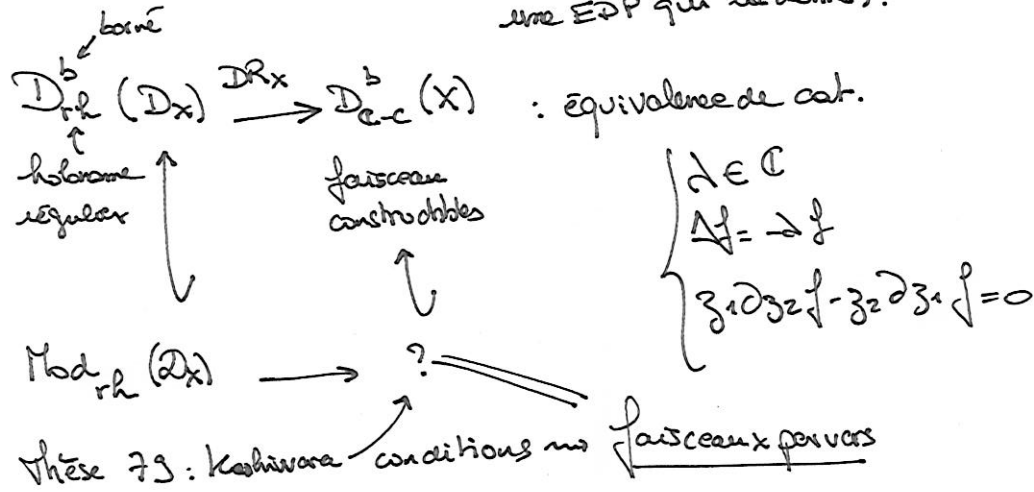 une EDP qui
borné
D^b_{rh} (D_X) \xrightarrow{DR_X} D^b_{C-c} (X) : équivalence de cat.
holonome
régulier
faisceau
constructibles
λ ∈ C
Δf = -λf
z_1∂z_2 f - z_2∂z_1 f = 0
Mod_{rh} (D_X) → ?
Thèse 79 : Kashiwara conditions ⇝ faisceaux pervers